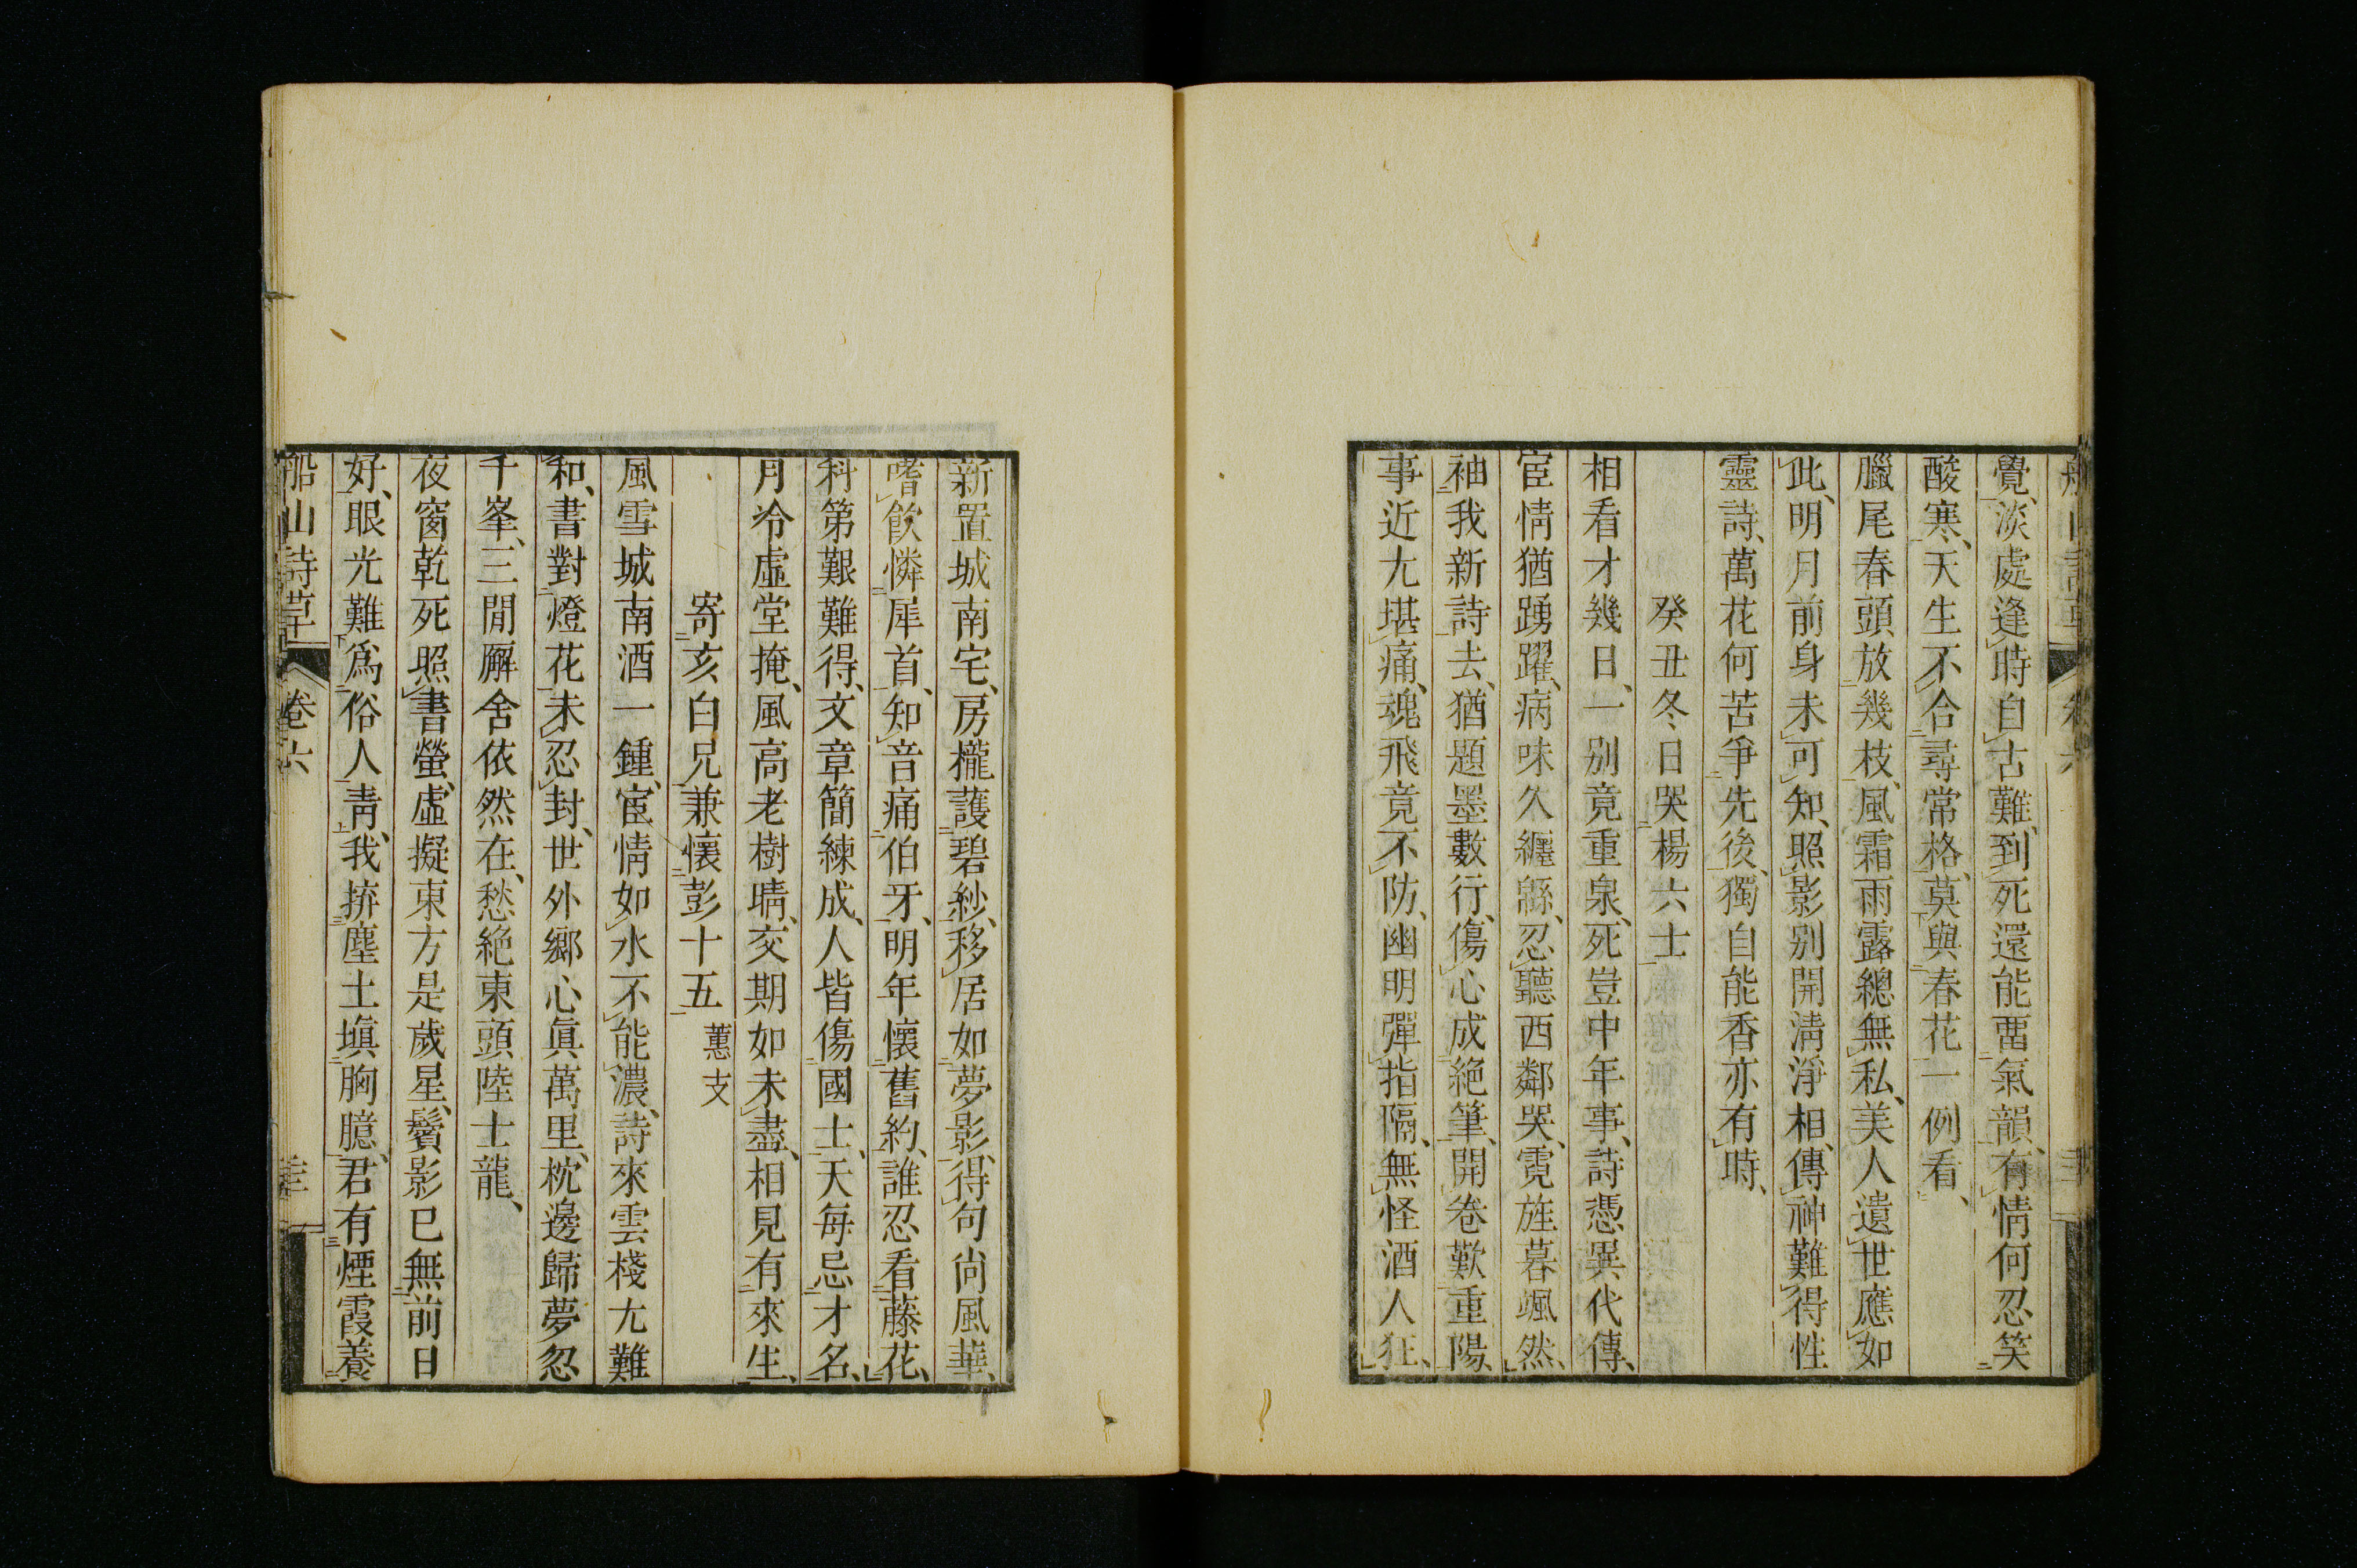 覺、淡處逢時自古難、到死還能畱氣韻、有情何忍笑
酸寒、天生不合尋常格、莫與春花一例看、
臘尾春頭放幾枝、風霜雨露總無私、美人遺世應如
此、明月前身未可知、照影別開淸淨相、傳神難得性
靈詩、萬花何苦爭先後、獨自能香亦有時、
癸丑冬日哭楊六士
相看才幾日、一別竟重泉、死豈中年事、詩憑異代傳、
宦情猶踴躍、病味久纏緜、忍聽西鄰哭、霓旌暮颯然、
袖我新詩去、猶題墨數行、傷心成絕筆、開卷歎重陽、
事近尤堪痛、魂飛竟不防、幽明彈指隔、無怪酒人狂、
新置城南宅、房櫳護碧紗、移居如夢影、得句尙風華、
嗜飮憐犀首、知音痛伯牙、明年懷舊約、誰忍看藤花、
科第艱難得、文章簡練成、人皆傷國士、天每忌才名、
月冷虛堂掩、風高老樹晴、交期如未盡、相見有來生、
寄亥白兄兼懷彭十五蕙支
風雪城南酒一鍾、宦情如水不能濃、詩來雲棧尤難
和、書對燈花未忍封、世外鄉心眞萬里、枕邊歸夢忽
千峯、三閒廨舍依然在、愁絕東頭陸士龍、
夜窗乾死照書螢、虛擬東方是歲星、鬢影已無前日
好、眼光難爲俗人靑、我拚塵土塡胸臆、君有煙霞養
船山詩草 卷六